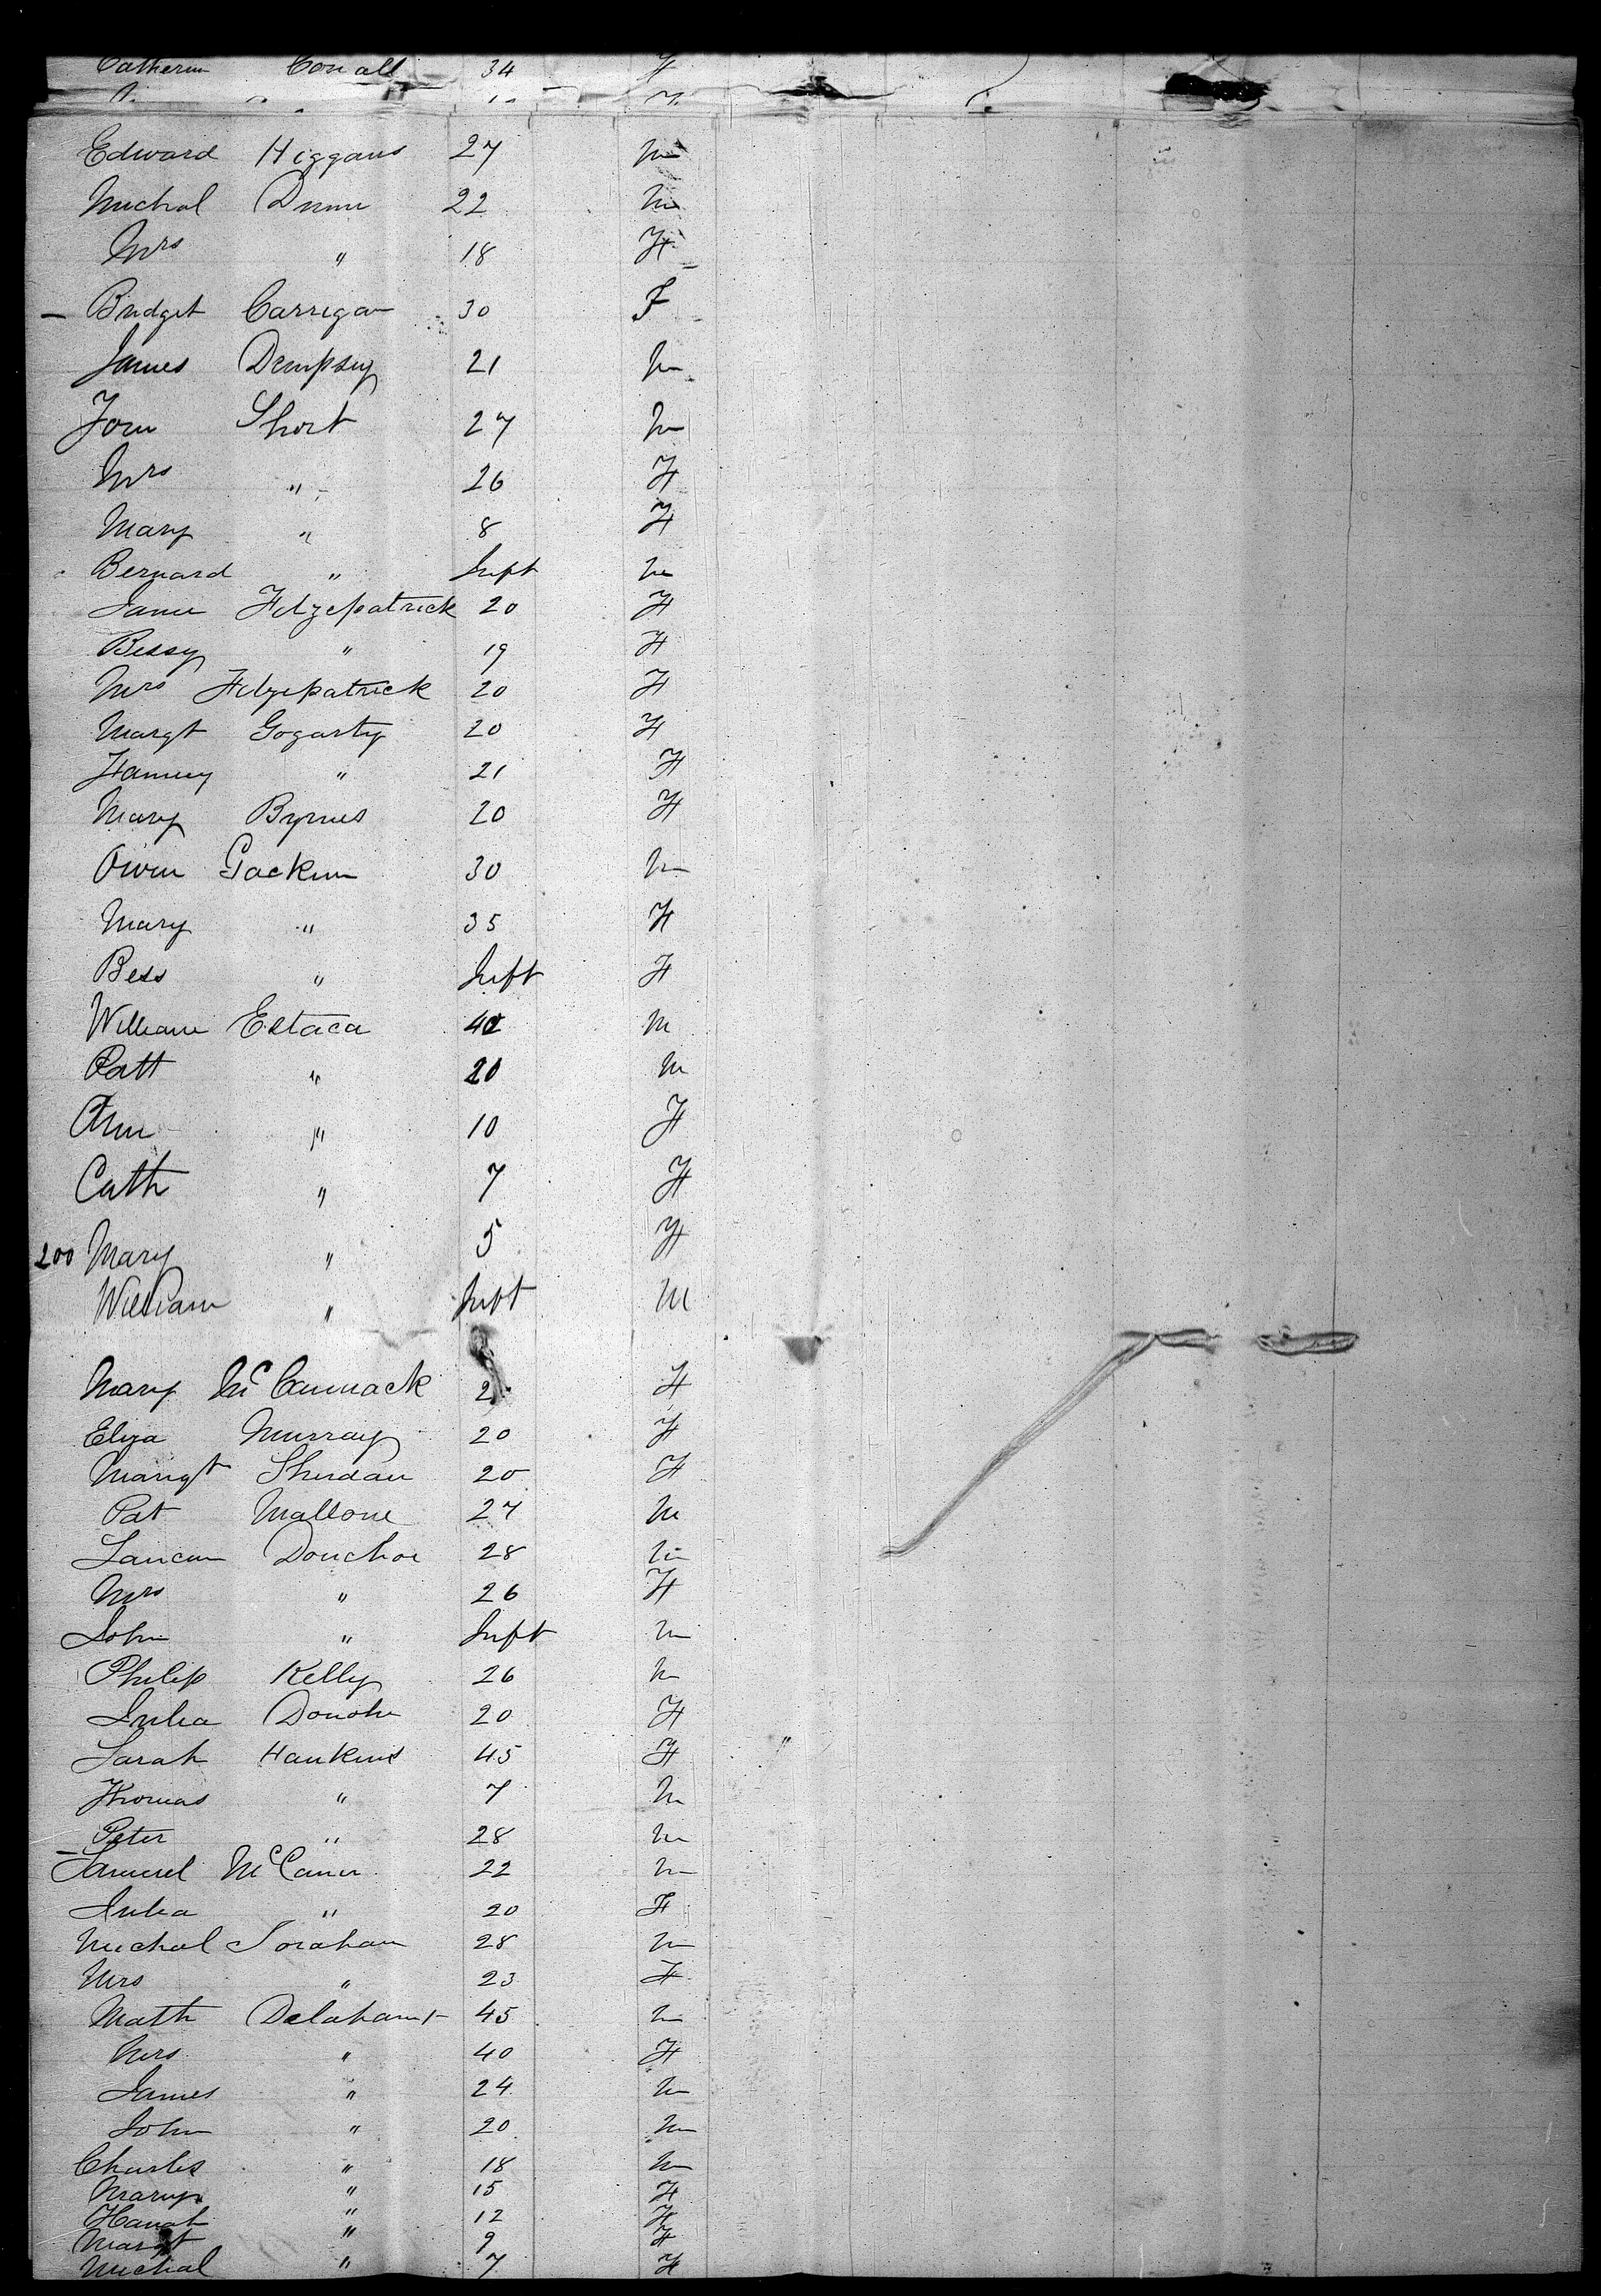 Catherin Conall 34 F
Edward Higgans 27 M
Michal Dunn 22 M
Mrs " 18 F
Bridget Carrigan 30 F
James Dempsey 21 M
Short 27 M
Mrs " 26 F
Mary " 8 F
Bernard " Inft M
Fitzepatrick 20 F
Bessy " 19 F
Mrs Fitzepatrick 20 F
Margt Gogarty 20 F
Fanny " 21 F
Mary Byrnes 20 F
Owen 30 M
Mary " 35 F
Bess " Inft F
William Estaca M
Patt " 20 M
Ann " 10 F
Cath " 7 F
200 Mary " 5 F
William " Inft M
Mary McCannack F
Eliza Murray 20 F
Margt Sherdan 20 F
Pat Mallone 27 M
Donehoe 28 M
Mrs " 26 F
John " Inft M
Philip Kelly 26 M
Julia Donohe 20 F
Sarah Hankins 45 F
Thomas " 7 M
Peter " 28 M
Samuel McCann 22 M
Julia " 20 F
Michal Sorahan 28 M
Mrs " 23 F
Math Delahant 45 M
Mrs " 40 F
James " 24 M
John " 20 M
Charles " 18 M
Mary " 15 F
Hanah " 12 F
Margt " 9 F
Michal " 7 F